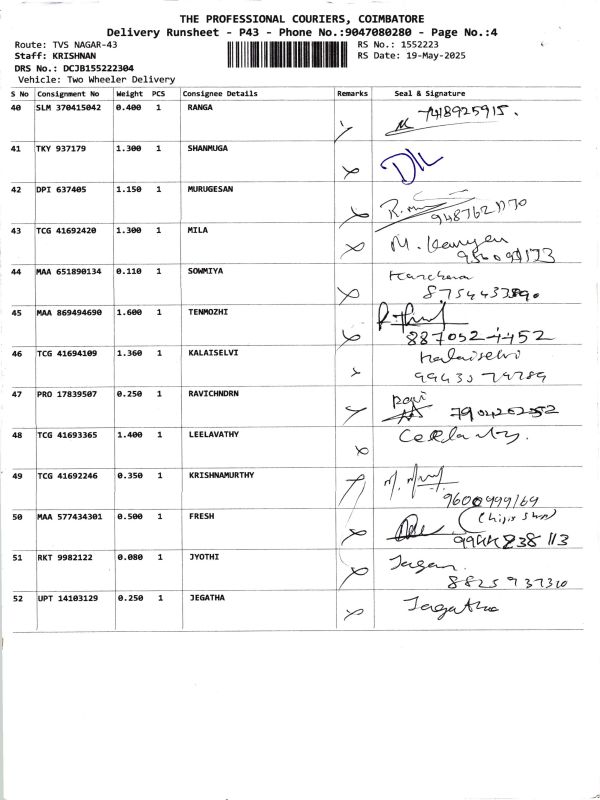 THE PROFESSIONAL COURIERS, COIMBATORE
Delivery Runsheet - P43 - Phone No.:9047080280 - Page No.:4
Route: TVS NAGAR-43
RS No.: 1552223
Staff: KRISHNAN
RS Date: 19-May-2025
DRS No.: DCJB155222304
Vehicle: Two Wheeler Delivery
S No Consignment No Weight PCS Consignee Details Remarks Seal & Signature
40 SLM 370415042 0.400 1 RANGA 7418925915.
41 TKY 937179 1.300 1 SHANMUGA
42 DPI 637405 1.150 1 MURUGESAN
43 TCG 41692420 1.300 1 MILA
44 MAA 651890134 0.110 1 SOWMIYA
45 MAA 869494690 1.600 1 TENMOZHI
46 TCG 41694109 1.360 1 KALAISELVI Kalaiselvi
47 PRO 17839507 0.250 1 RAVICHNDRN Ravi
48 TCG 41693365 1.400 1 LEELAVATHY
49 TCG 41692246 0.350 1 KRISHNAMURTHY
9600999169
50 MAA 577434301 0.500 1 FRESH
51 RKT 9982122 0.080 1 JYOTHI Jagan
8825937310
52 UPT 14103129 0.250 1 JEGATHA Jagatha